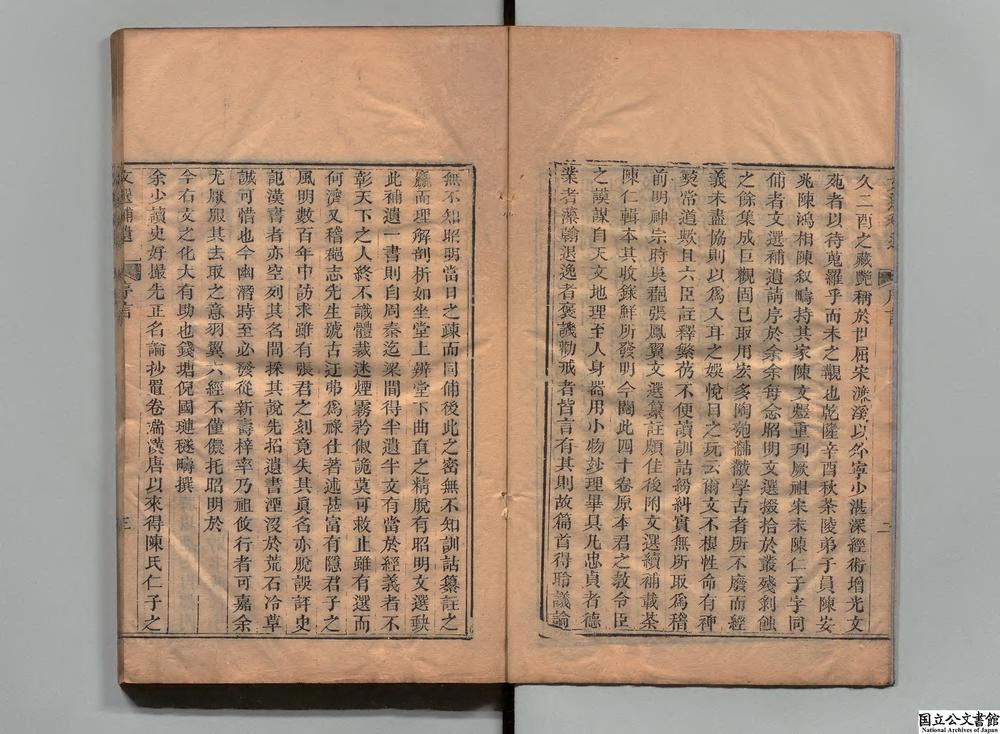 久二酉之藏艷稱於世屈宋濂溪以外寧少湛深經術增光文
苑者以待蒐羅乎而未之覯也乾隆辛酉秋茶陵弟子員陳安
兆陳鴻相陳叙疇持其家陳文煋重刋厥祖宋末陳仁子字同
俌者文選補遺請序於余余每念昭明文選掇拾於叢殘剩蝕
之餘集成巨觀固已取用宏多陶匏黼黻學古者所不廢而經
義未盡協則以爲入耳之娛悅目之玩云爾文不根性命有裨
奚當道歟且六臣註釋繁芿不便讀訓詁紛糾實無所取爲稽
前明神宗時吳郡張鳳翼文選纂註頗佳後附文選續補載茶
陳仁輯本其收錄鮮所發明今閱此四十卷原本君之教令臣
之謨謀自天文地理至人身器用小物玅理畢具凡忠貞者德
業者藻翰退逸者褒譏勸戒者皆言有其則故篇首得聆議論
二
無不知昭明當日之疎而同俌後此之密無不知訓詁纂註之
麤而理解剖析如坐堂上辨堂下曲直之精脫有昭明文選缺
此補遺一書則自周秦迄梁間得半遺半文有當於經義者不
彰天下之人終不識體裁迷煙霧矜俶詭莫可救止雖有選而
何濟又稽郡志先生號古迂弗爲祿仕著述甚富有隱君子之
風明數百年中訪求雖有張君之刻竟失其真名亦脫誤評史
記漢書者亦空列其名間採其說先招遺書湮沒於荒石冷草
誠可惜也今幽潛時至必發從新壽梓率乃祖攸行者可嘉余
尤厭服其去取之意羽翼六經不僅儗托昭明於
今右文之化大有助也錢塘倪國璉穟疇撰
余少讀史好撮先正名論抄置卷端漢唐以來得陳氏仁子之
文選補遺
序言
三
国立公文書館
National Archives of Japan